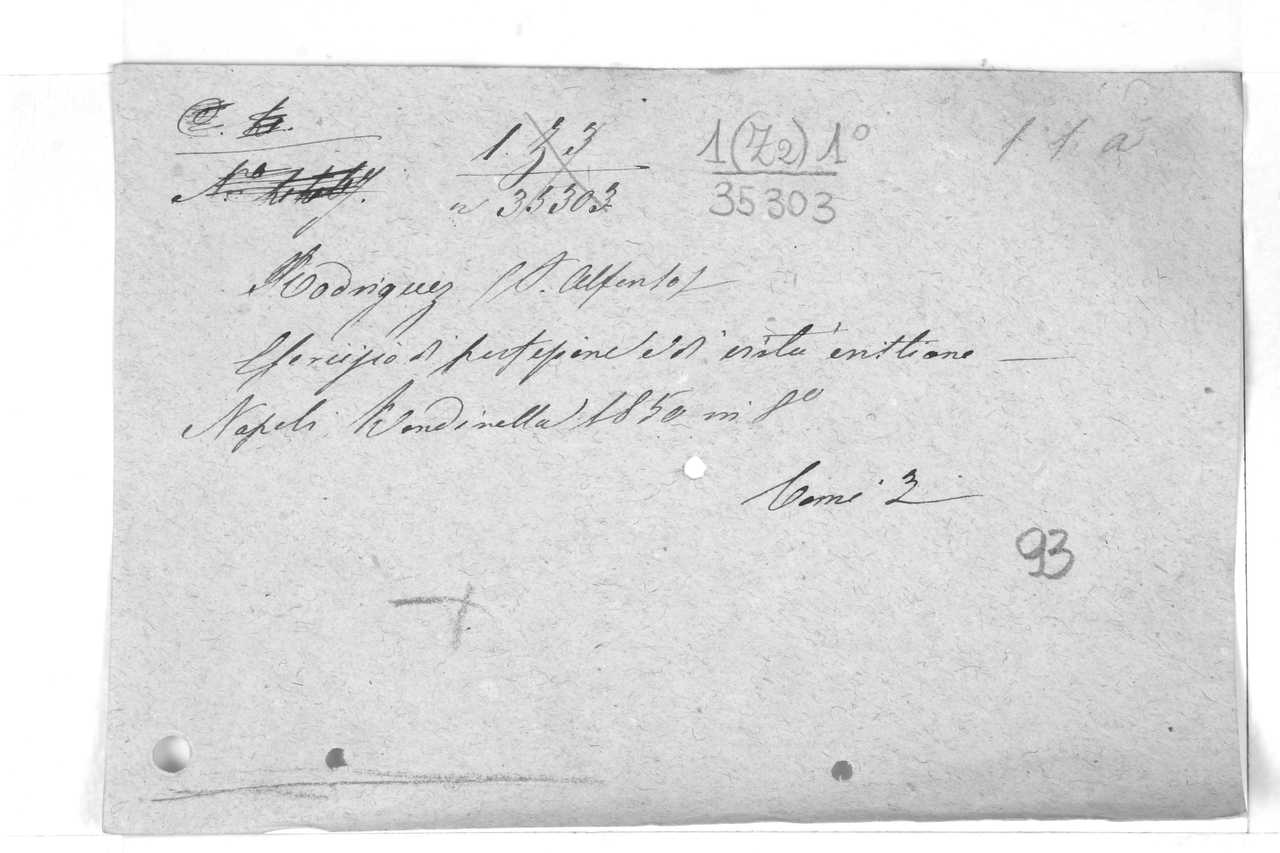 1. Z 3
n 35303
1(Z2)1º
35303
1. 1. a
Rodriguez (P. Alfonso)
Esercizio di perfezione e di virtù cristiane
Napoli Rondinella 1850 in 8º
Tomi 2
93